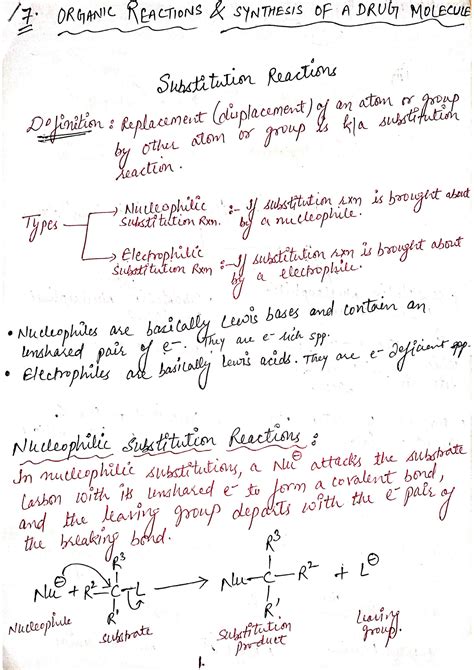 17. ORGANIC REACTIONS & SYNTHESIS OF A DRUG MOLECULE
Substitution Reactions
Definition : Replacement (displacement) of an atom or group
by other atom or group is k/a substitution
reaction.
Types
Nucleophilic Substitution Rxn. :- If substitution rxn is brought about
by a nucleophile.
Electrophilic Substitution Rxn :- If substitution rxn is brought about
by a electrophile.
• Nucleophiles are basically Lewis bases and contain an
unshared pair of e-. They are e- rich spp.
• Electrophiles are basically Lewis acids. They are e- deficient spp.
Nucleophilic Substitution Reactions :
In nucleophilic substitutions, a Nu⊖ attacks the substrate
Carbon with its unshared e- to form a covalent bond,
and the leaving group departs with the e- pair of
the breaking bond.
R3 R3
Nu⊖ + R2-C-L → Nu-C-R2 + L⊖
R' R'
Nucleophile substrate Substitution product Leaving group.
1.